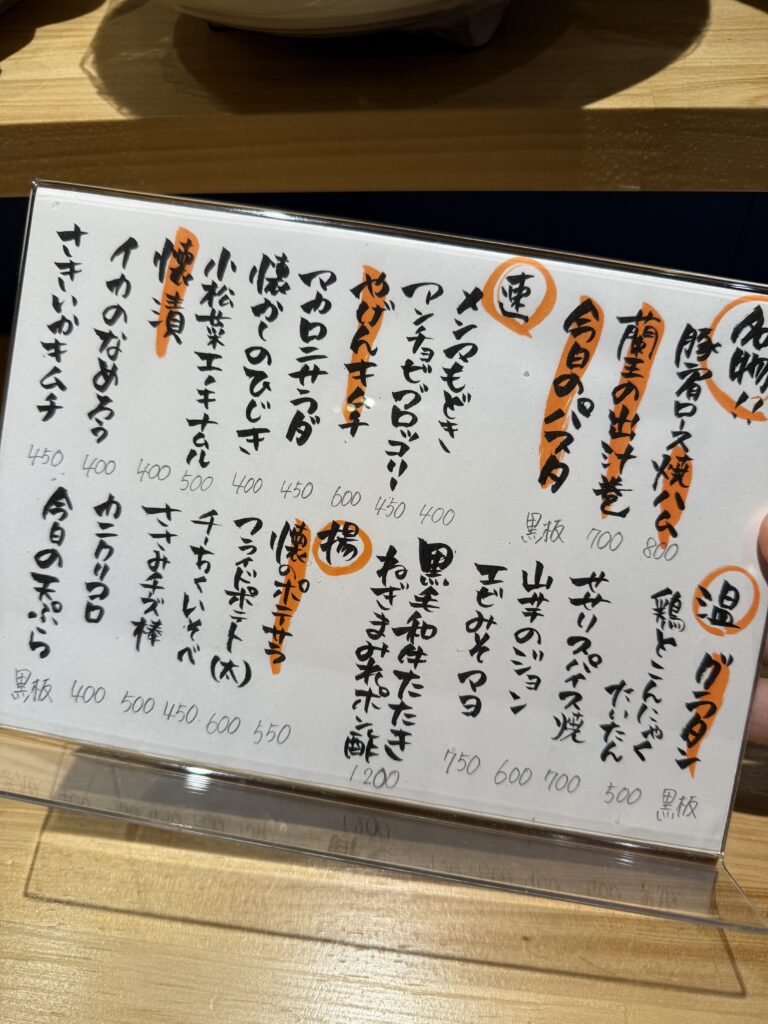 名物!!
豚肩ロース焼ハム 800
蘭王の出汁巻 700
今日のパスタ 黒板
速
メンマもどき 400
アンチョビブロッコリー 450
やげんキムチ 600
マカロニサラダ 450
懐かしのひじき 400
小松菜エノキナムル 500
懐漬 400
イカのなめろう 400
さきいかキムチ 450
温
グラタン 黒板
鶏とこんにゃく
たいたん 500
せせりスパイス焼 700
山芋のジョン 600
エビみそマヨ 750
黒毛和牛たたき
ねぎまみれポン酢 1200
揚
懐のポテサラ 550
フライドポテト(太) 600
チーちくいそべ 450
ささみチーズ棒 500
カニクリコロ 400
今日の天ぷら 黒板